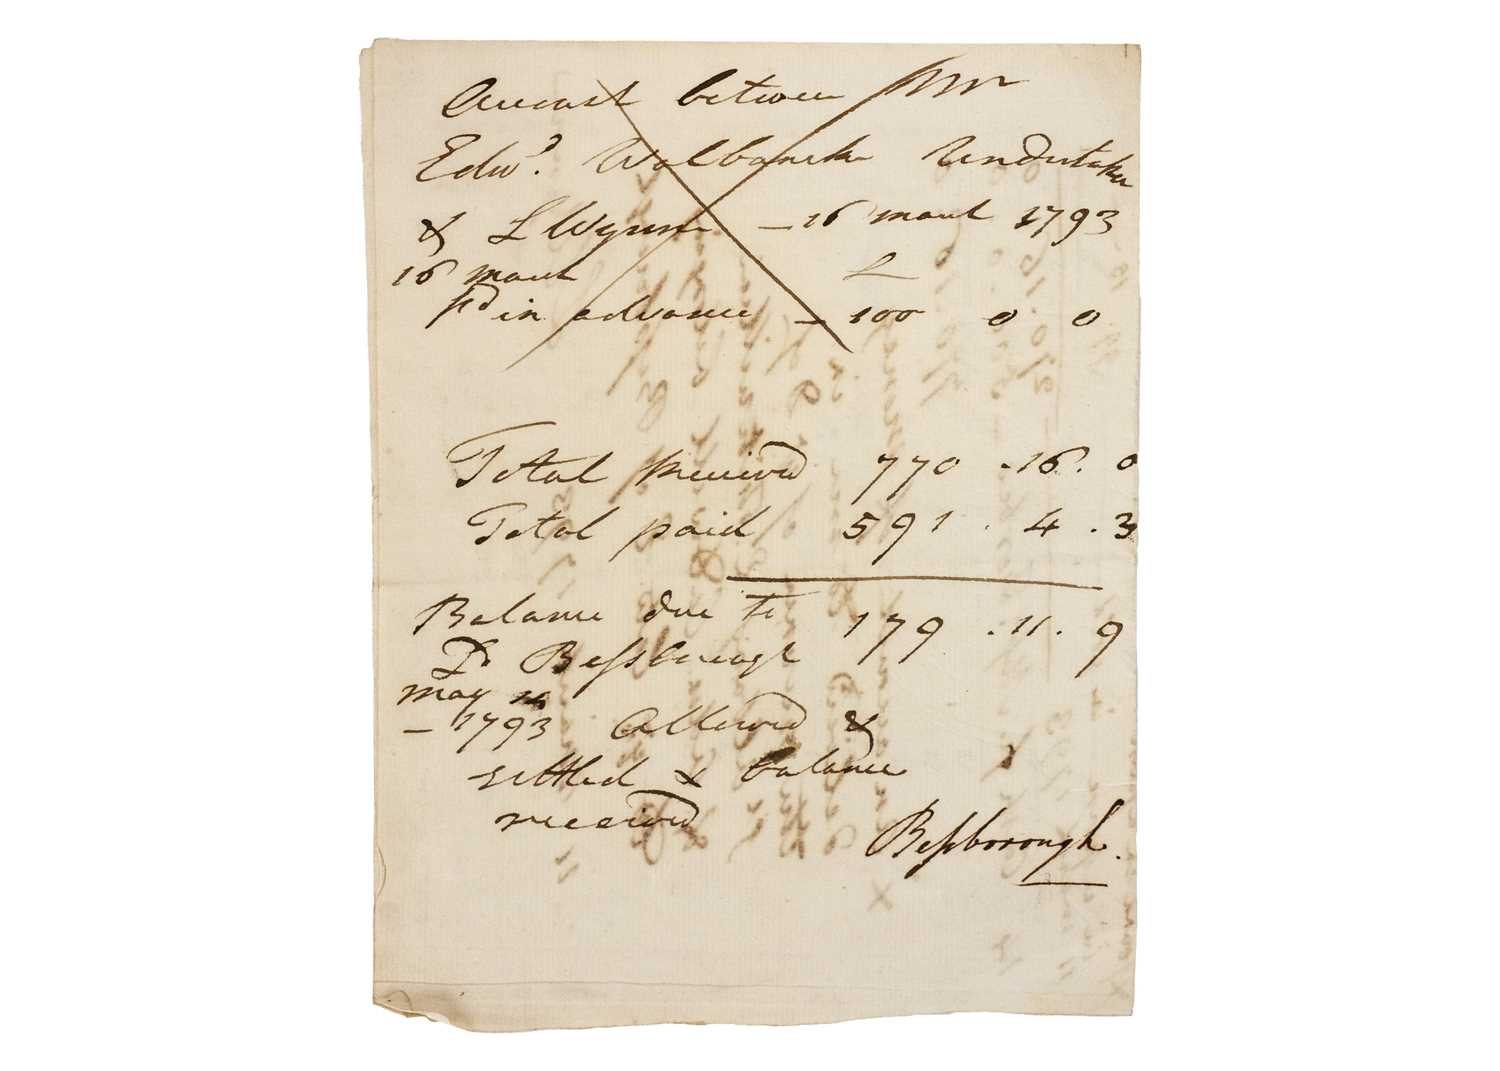 Account between Mr
Edwd. Walbancke Undertaker
& L Wynne – 16 March 1793
16 March £
pd in advance – 100 0 0
Total received 770 . 16 . 0
Total paid 591 . 4 . 3
Balance due to 179 . 11 . 9
Ld Bessborough
May
– 1793 Allowed &
settled & balance
received
Bessborough.